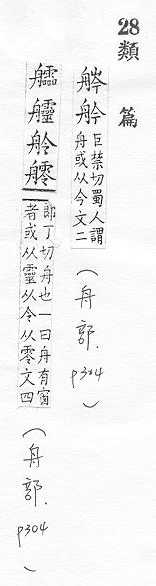 28
類篇
舲 巨禁切蜀人謂
舟或从今文二
(舟部. p304)
舲
郎丁切舟也一曰舟有窗
者或从靈从令从零文四
(舟部. p304)